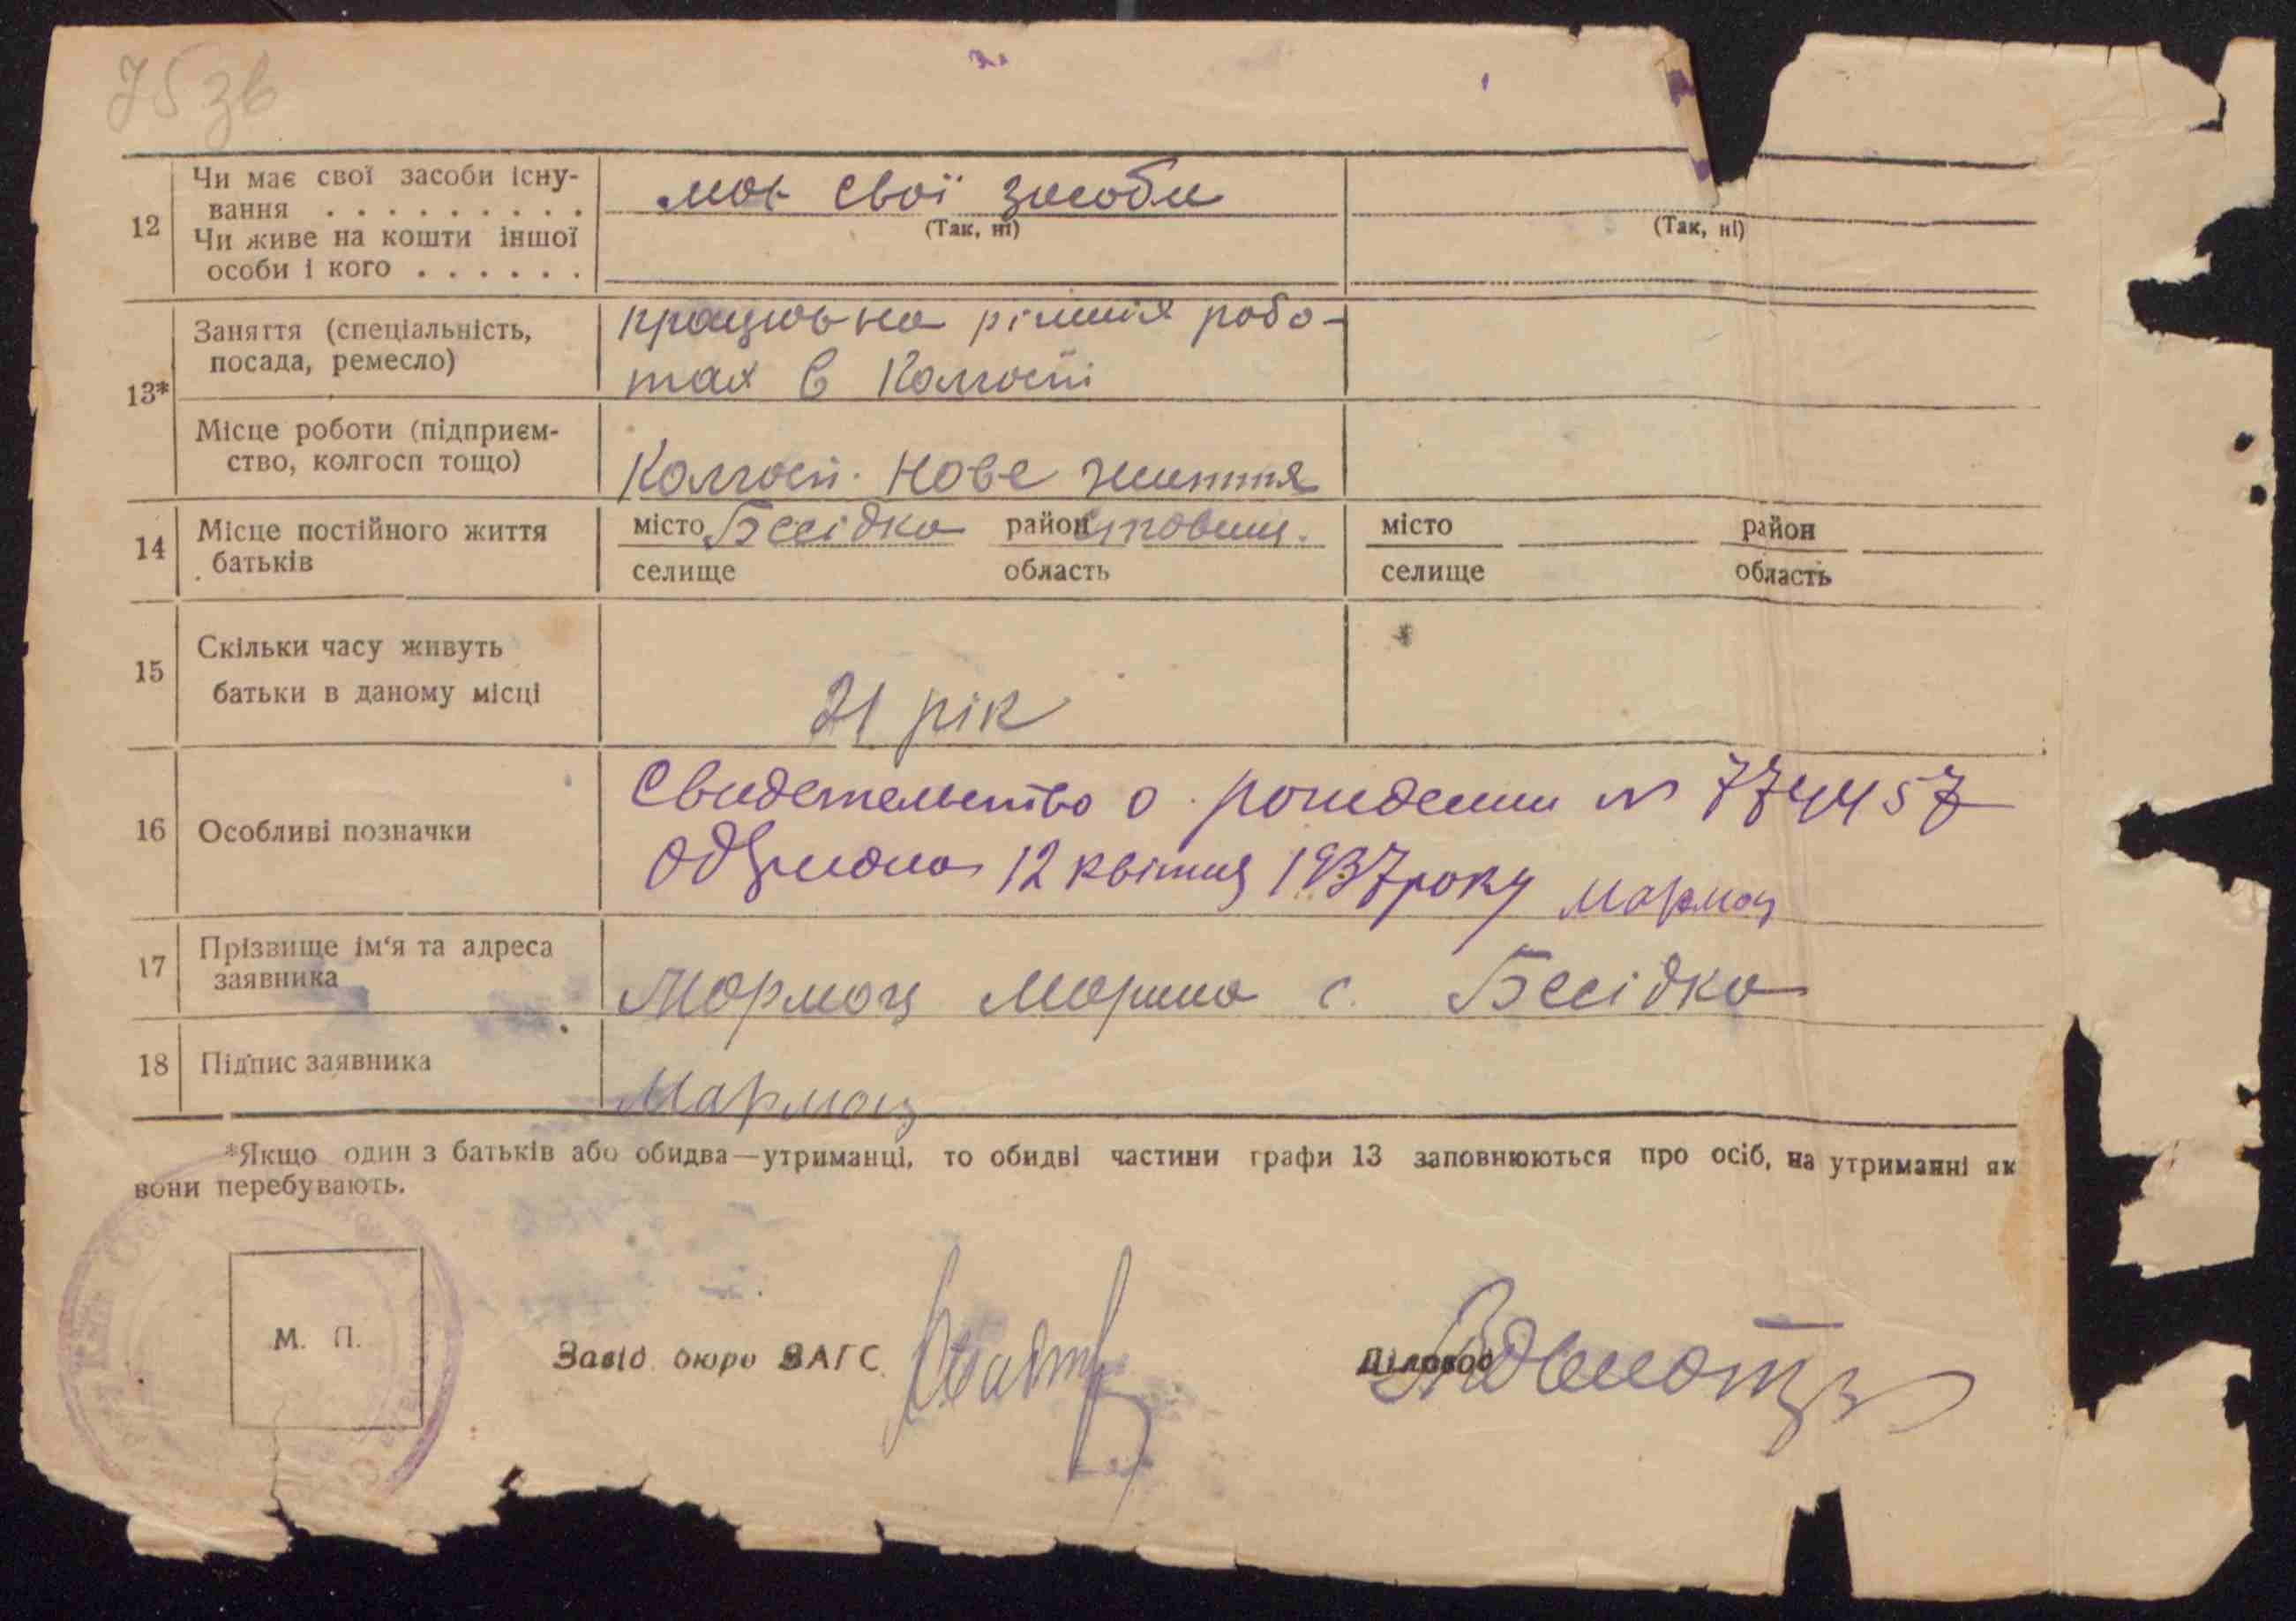 75 зв
12 Чи має свої засоби існу-
вання . . . . . . . . .
має свої засоби
(Так, ні)
(Так, ні)
Чи живе на кошти іншої
особи і кого . . . . . .
13* Заняття (спеціальність,
посада, ремесло)
працює на різних робо-
тах в Колгоспі
Місце роботи (підприєм-
ство, колгосп тощо)
Колгосп. Нове життя
14 Місце постійного життя
батьків
місто Бесідка район Ставищ.
селище область
місто район
селище область
15 Скільки часу живуть
батьки в даному місці
21 рік
16 Особливі позначки
Свидетельство о рождении № 774457
одержала 12 квітня 1937 року Мармац
17 Прізвище ім'я та адреса
заявника
Мармац Марина с. Бесідка
18 Підпис заявника
Мармац
*Якщо один з батьків або обидва—утриманці, то обидві частини графи 13 заповнюються про осіб, на утриманні як
вони перебувають.
М. П.
Завід. бюро ЗАГС
Діловод